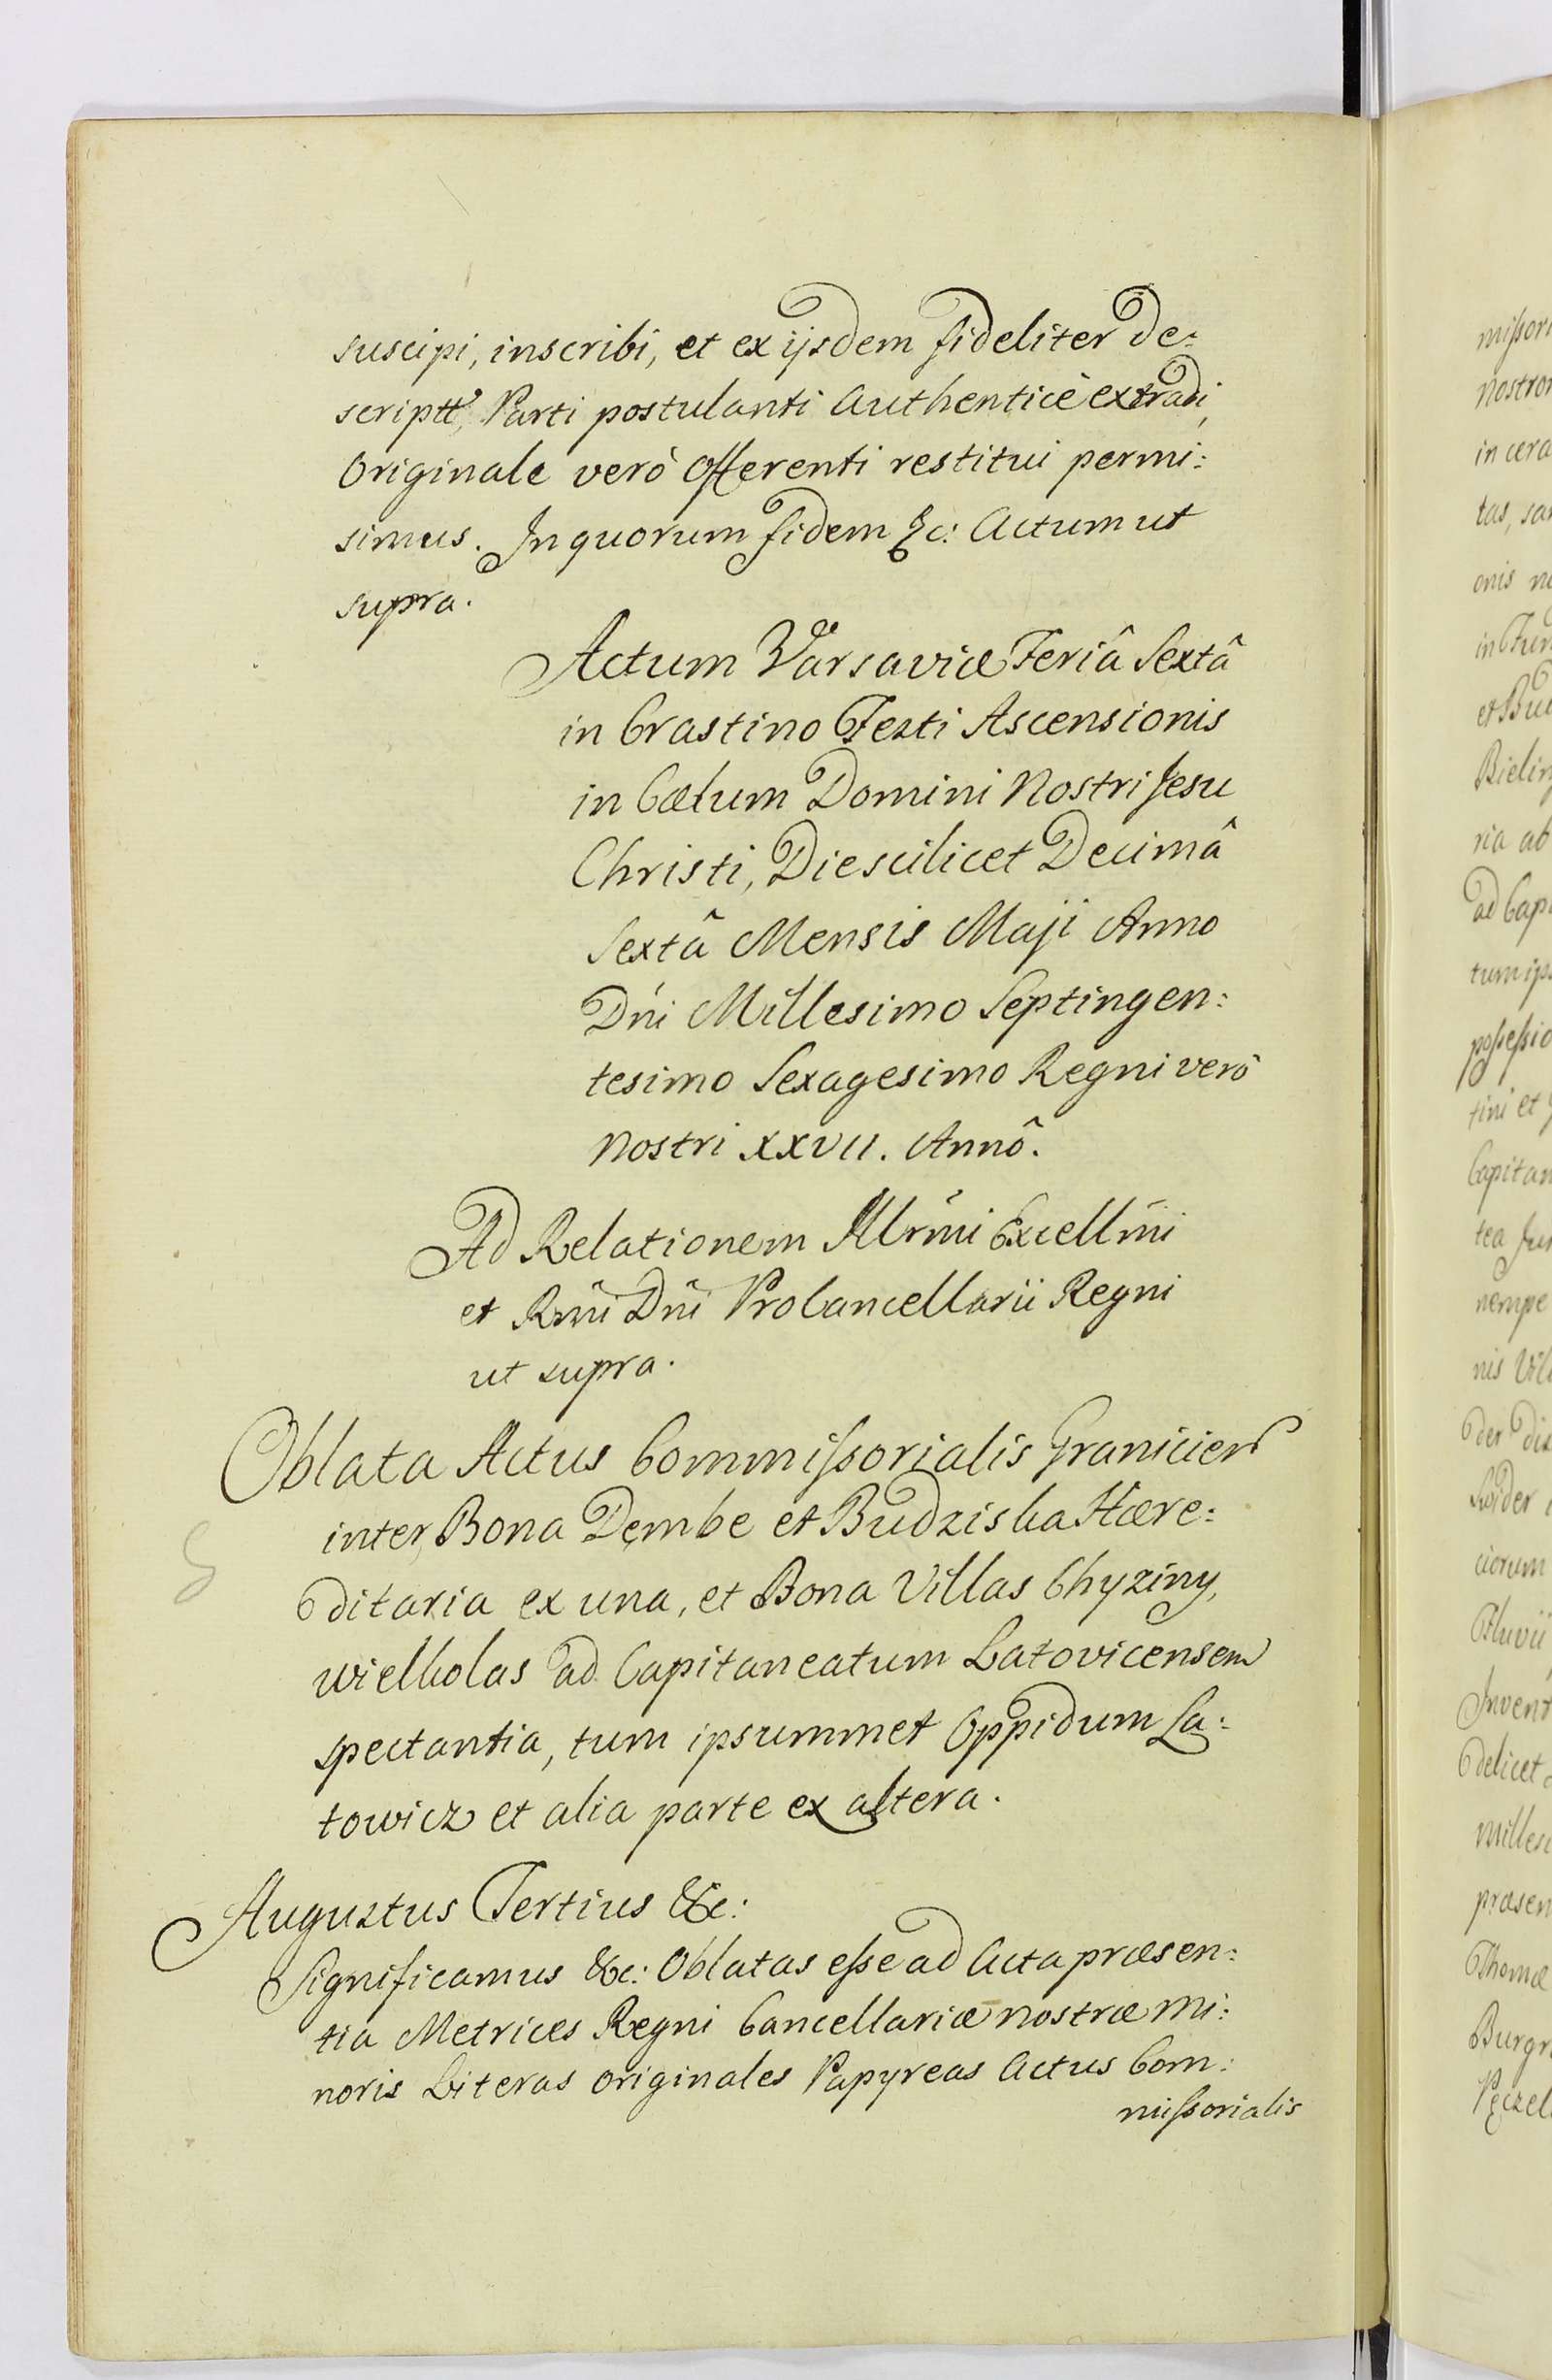 suscipi, inscribi, et ex ijsdem fideliter de:
scriptt, Parti postulanti Authenticè extradi,
Originale verò Offerenti restitui permi:
simus. In quorum fidem &c: Actum ut
supra.
Actum Varsaviæ Feriâ Sextâ
in Crastino Festi Ascensionis
in Cælum Domini Nostri Jesu
Christi, Die scilicet Decimâ
Sextâ Mensis Maji Anno
Dñi Millesimo Septingen:
tesimo Sexagesimo Regni verò
Nostri XXVII. Annô.
Ad Relationem Illrm̃i Excellm̃i
et Rm̃i Dñi ProCancellarii Regni
ut supra.
Oblata Actus Commissorialis Granicier
inter Bona Dębe et Budziska Hære:
ditaria ex una, et Bona Villas Chyziny,
Wielkolas ad Capitaneatum Latovicensem
spectantia, tum ipsummet Oppidum La:
towicz et alia parte ex altera.
Augustus Tertius &c:
Significamus &c: Oblatas esse ad Acta præsen:
tia Metrices Regni Cancellariæ nostræ Mi:
noris Literas Originales Papyreas Actus Com:
missorialis
missori
nostror
in cera
tas, sa
onis n
in Fun
et Bu
Bielin
ria ab
ad Cap
tum ip
possessio
tini et
Capitan
tea Ju
nempe
nis Vil
der dis
Swider
ciorum
Fluvii
Invent
delicet
Milles
præsen
Thomæ
Burgr
Pęczel